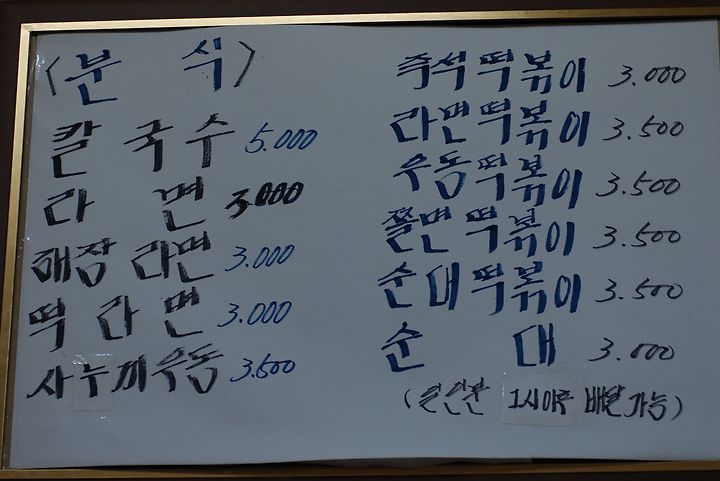 <분 식>
칼 국 수 5.000
라 면 3.000
해장 라면 3.000
떡 라 면 3.000
사누끼우동 3.500
즉석떡볶이 3.000
라면떡볶이 3.500
우동떡볶이 3.500
쫄면떡볶이 3.500
순대떡볶이 3.500
순 대 3.000
(일인분 1시이후 배달가능)